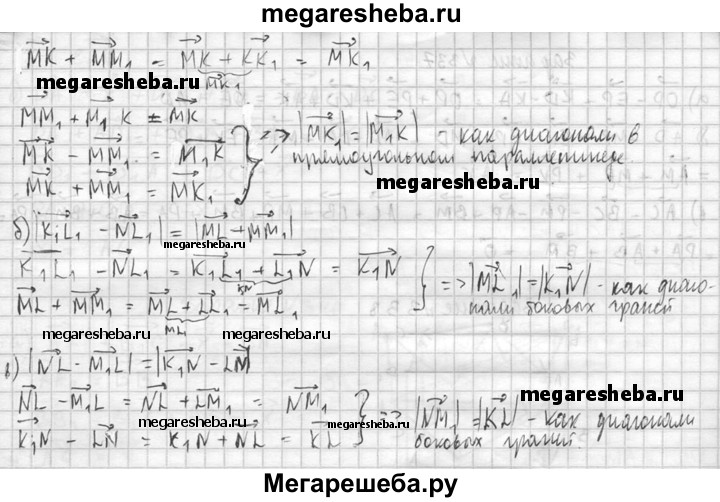 megaresheba.ru
MK + MM₁ = MK + KK₁ = MK₁
MK₁
megaresheba.ru
MM₁ + M₁K = MK
MK - MM₁ = M₁K
MK + MM₁ = MK₁
=> |MK₁| = |M₁K| - как диагонали в
прямоугольном параллепипеде.
megaresheba.ru
б) |K₁L₁ - NL₁| = |ML + MM₁|
megaresheba.ru
K₁L₁ - NL₁ = K₁L₁ + L₁N = K₁N
KN
ML + MM₁ = ML + LL₁ = ML₁
ML₁
=> |ML₁| = |K₁N| - как диаго-
нали боковых граней
megaresheba.ru
megaresheba.ru
в) |NL - M₁L| = |K₁N - LN|
megaresheba.ru
NL - M₁L = NL + LM₁ = NM₁
K₁N - LN = K₁N + NL = KL
=> |NM₁| = |KL| - как диагонали
боковых граней.
megaresheba.ru
megaresheba.ru
megaresheba.ru
Мегарешеба.ру